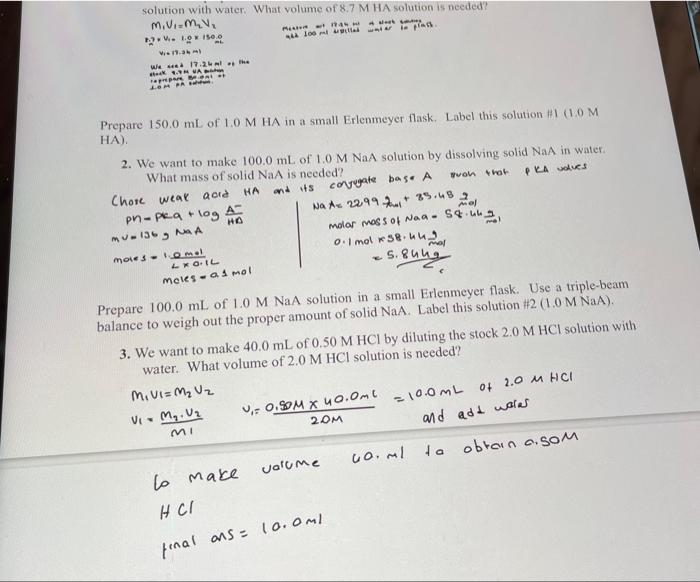 solution with water. What volume of 8.7 M HA solution is needed?
M₁V₁=M₂V₂
8.7 × V₁ = 1.0 × 150.0
mL
V₁ = 17.24 ml
add 100 ml distilled water to flask.
We need 17.24 ml of the
stock 8.7M HA
Prepare 150.0 mL of 1.0 M HA in a small Erlenmeyer flask. Label this solution #1 (1.0 M
HA).
2. We want to make 100.0 mL of 1.0 M NaA solution by dissolving solid NaA in water.
What mass of solid NaA is needed?
Chose weak acid HA and its conjugate base A such that pKA values
pH = pKa + log A⁻/HA
mv = 136 g NaA
moles = 1.0 mol
L × 0.1L
moles = 0.1 mol
NaA = 22.99 g/mol + 35.45 g/mol
molar mass of NaA = 58.44 g/mol
0.1 mol × 58.44 g/mol
= 5.844g
Prepare 100.0 mL of 1.0 M NaA solution in a small Erlenmeyer flask. Use a triple-beam
balance to weigh out the proper amount of solid NaA. Label this solution #2 (1.0 M NaA).
3. We want to make 40.0 mL of 0.50 M HCl by diluting the stock 2.0 M HCl solution with
water. What volume of 2.0 M HCl solution is needed?
M₁V₁=M₂V₂
V₁ = M₂.V₂
M1
V₁= 0.50M × 40.0ml
2.0M
= 10.0mL of 2.0 M HCl
and add water
to make volume 40.ml to obtain 0.50M
HCl
final ans = 10.0ml